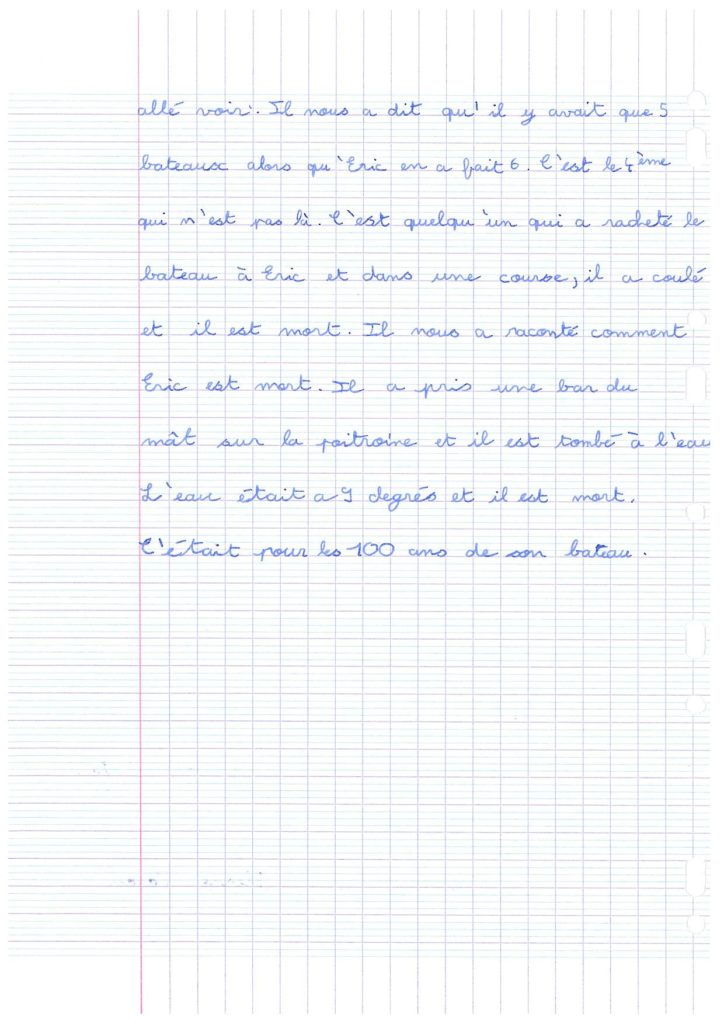 allé voir. Il nous a dit qu'il y avait que 5
bateaux alors qu'Eric en a fait 6. C'est le 4ème
qui n'est pas là. C'est quelqu'un qui a racheté le
bateau à Eric et dans une course, il a coulé
et il est mort. Il nous a raconté comment
Eric est mort. Il a pris une bar du
mât sur la poitroine et il est tombé à l'eau
L'eau était a 9 degrés et il est mort.
C'était pour les 100 ans de son bateau.